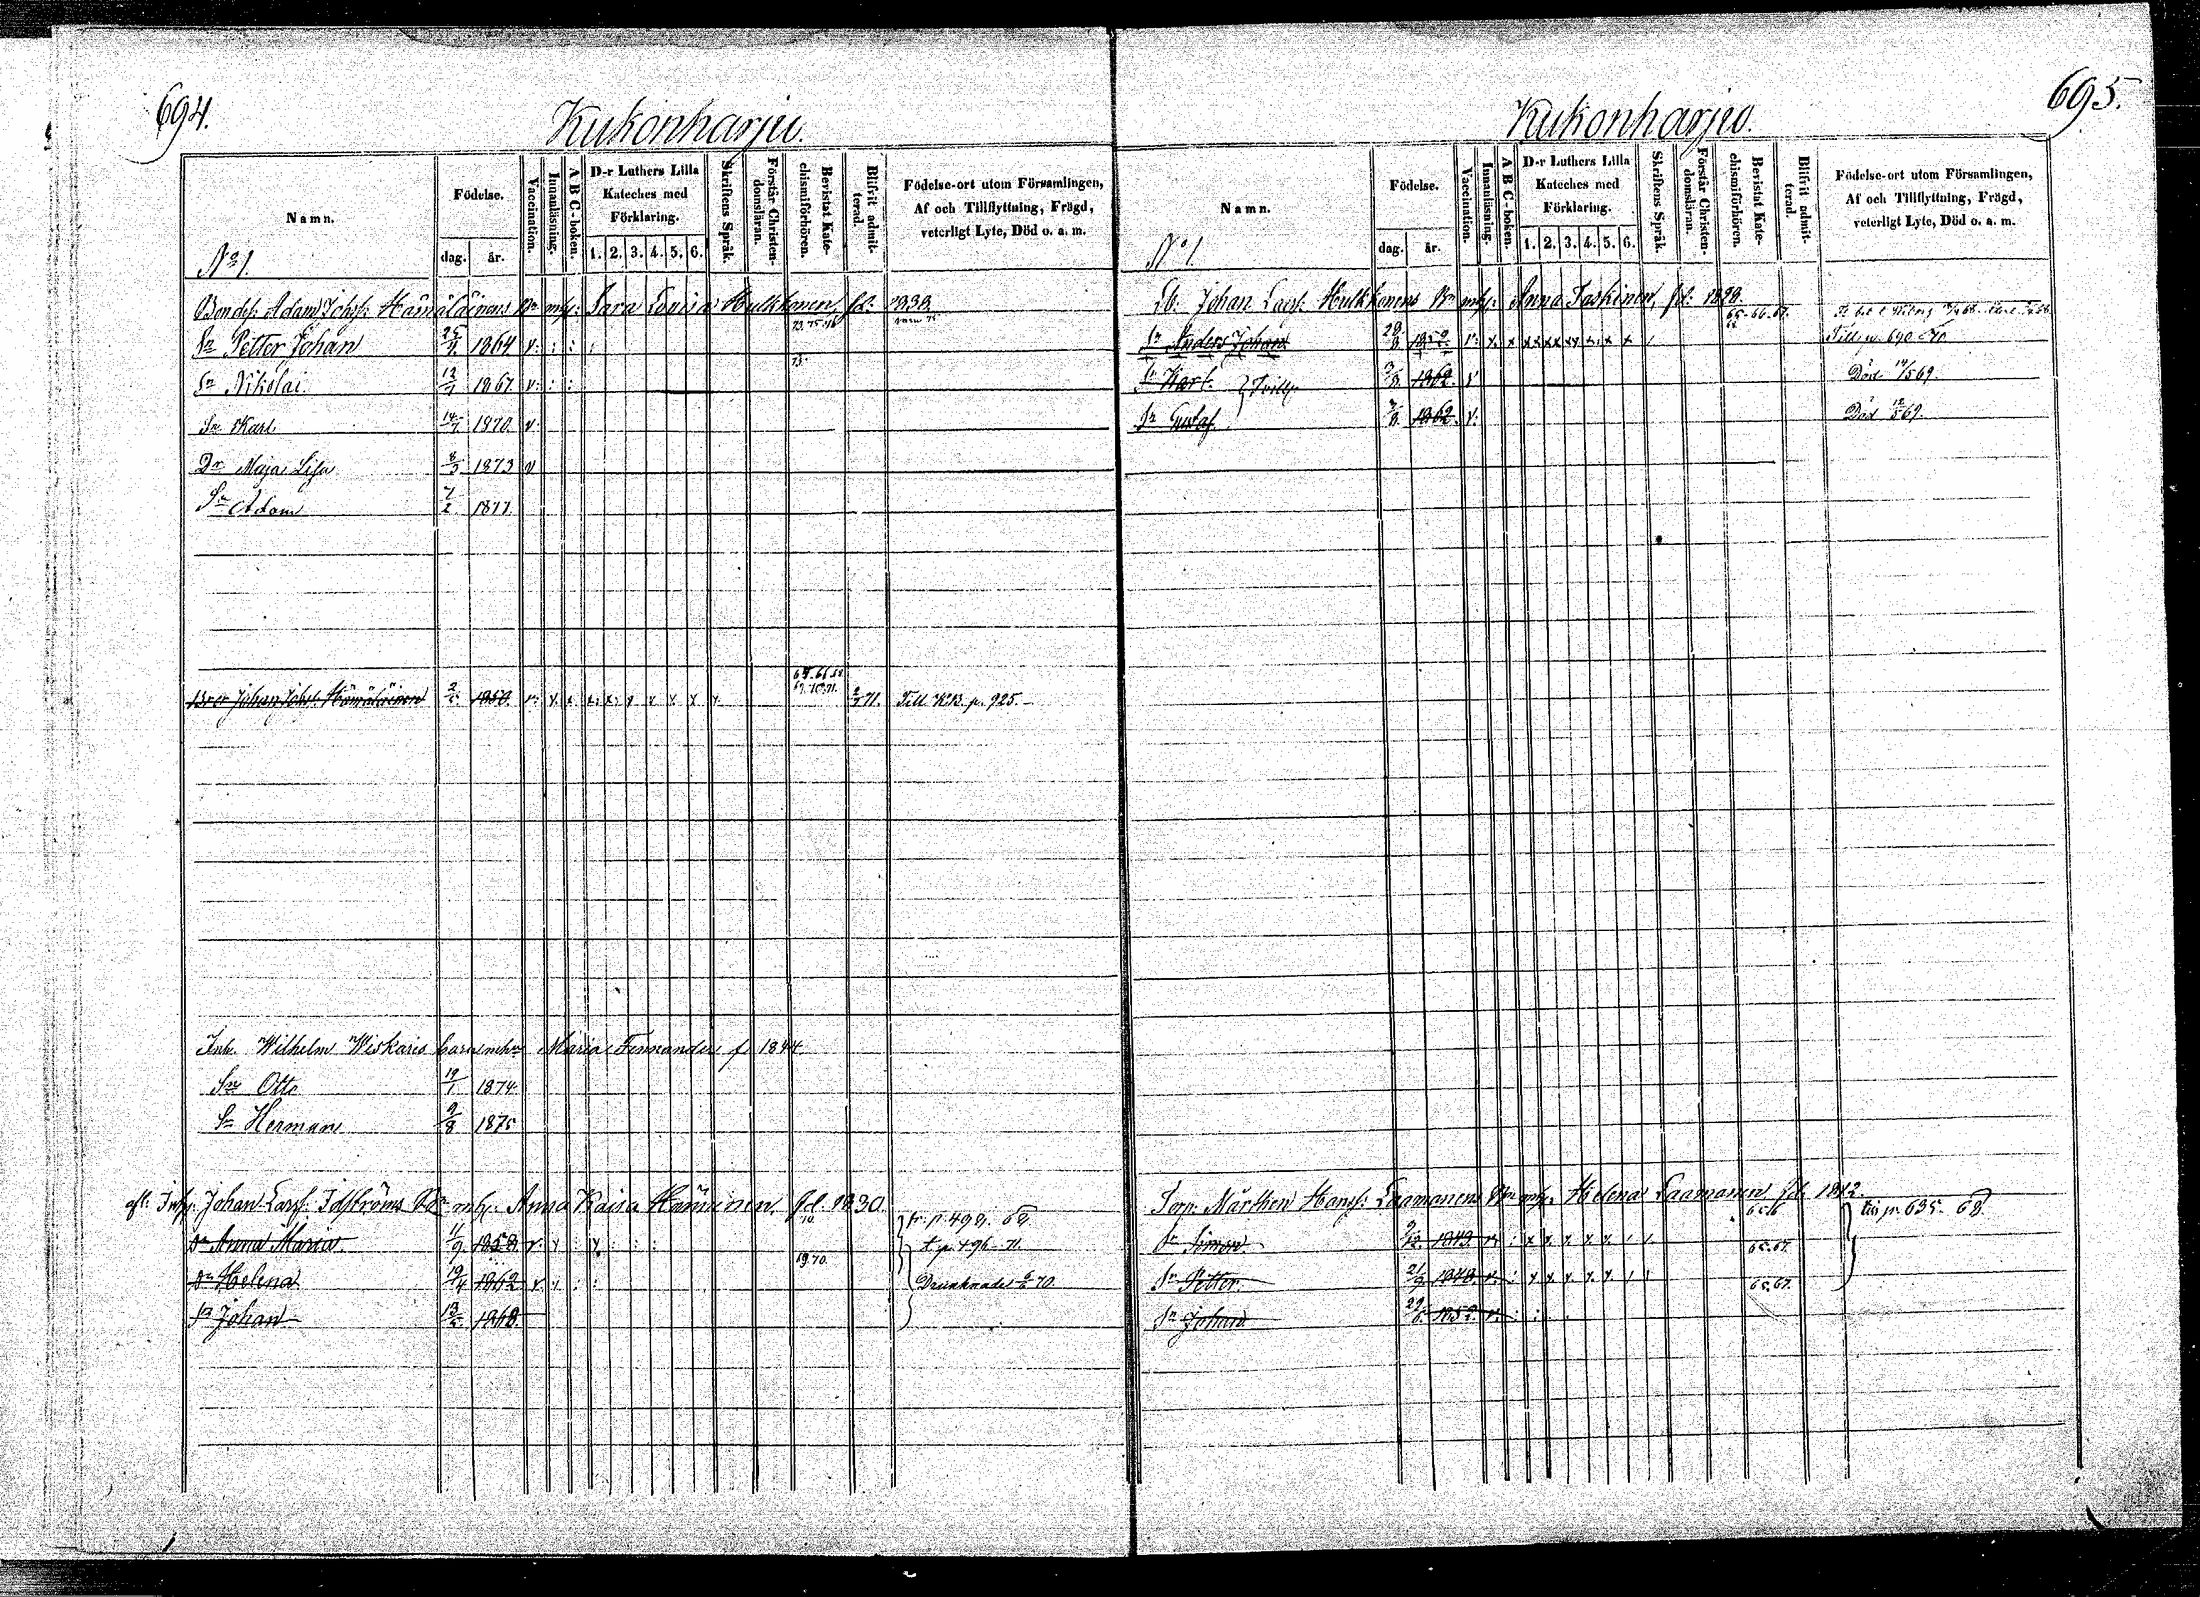 694.
Kukonharju.
Namn.
Födelse.
dag. år.
Vaccination.
Innanläsning.
A B C-boken.
D-r Luthers Lilla Kateches med Förklaring.
1. 2. 3. 4. 5. 6.
Skriftens Språk.
Förstår Christendomsläran.
Bevistat Katechismiförhören.
Blifvit admitterad.
Födelse-ort utom Församlingen, Af och Tillflyttning, Frägd, veterligt Lyte, Död o. a. m.
No 1.
Bondes: Adam Johss: Hämäläinens Bn m/h: Sara Lovisa Hulkkonen, fd: 1838.
73. 75. 76
Sn Petter Johan 25/4 1864 v. : : :
73.
Sn Nikolai 12/1 1867. v: : :
Sn Karl 14/7 1870. v.
Dr Maja Lisa 8/3 1873 v
Sn Adam 7/2 1877.
65. 66. 68
69. 70. 71.
Bror Johan Johss: Hämäläinen 2/5 1850. v: x x x: x: x x x x x 71. Till KB. p. 925.
Inh. Wilhelm Wiskares barn m/hu Maria Fernander f. 1844.
Sn Otto 19/1 1874.
Sn Herman 9/8 1875
afl: Inh: Johan Larss: Idströms Bn m/h: Anna Kaisa Hänninen. fd. 1830.
70. fr. p. 499. 68
Dr Anna Maria 11/9 1858. v: x : x : : : t. p. 496 - 71.
69. 70.
Dr Helena 19/4 1862 v x : : Drunknade 70.
Sn Johan 13/5 1868.
695.
Kukonharju.
Namn.
Födelse.
dag. år.
Vaccination.
Innanläsning.
A B C-boken.
D-r Luthers Lilla Kateches med Förklaring.
1. 2. 3. 4. 5. 6.
Skriftens Språk.
Förstår Christendomsläran.
Bevistat Katechismiförhören.
Blifvit admitterad.
Födelse-ort utom Församlingen, Af och Tillflyttning, Frägd, veterligt Lyte, Död o. a. m.
No 1.
Johan Larss: Hulkkonens Bn m/h: Anna Taskinen, fd: 1828.
65. 66. 67.
Sn Anders Johan 28/8 v: x. x x x x x x x Till p. 690
Sn Karl } Tvill: 3/8. 1862. v Död 69.
Sn Gustaf 3/8. 1862. v. Död 12/5 69.
Torp: Mårthen Hanss: Laamanens Bn m/h. Helena Laamanen fd. 1812.
till p. 635. 68.
Sn Simon 9/12. 1843. v. : x x. x. x. x.
65. 67.
Sn Petter 21/9 1848. v. : x x. x. x. x.
65. 67.
Sn Johan 29/6. 1852. v. : :